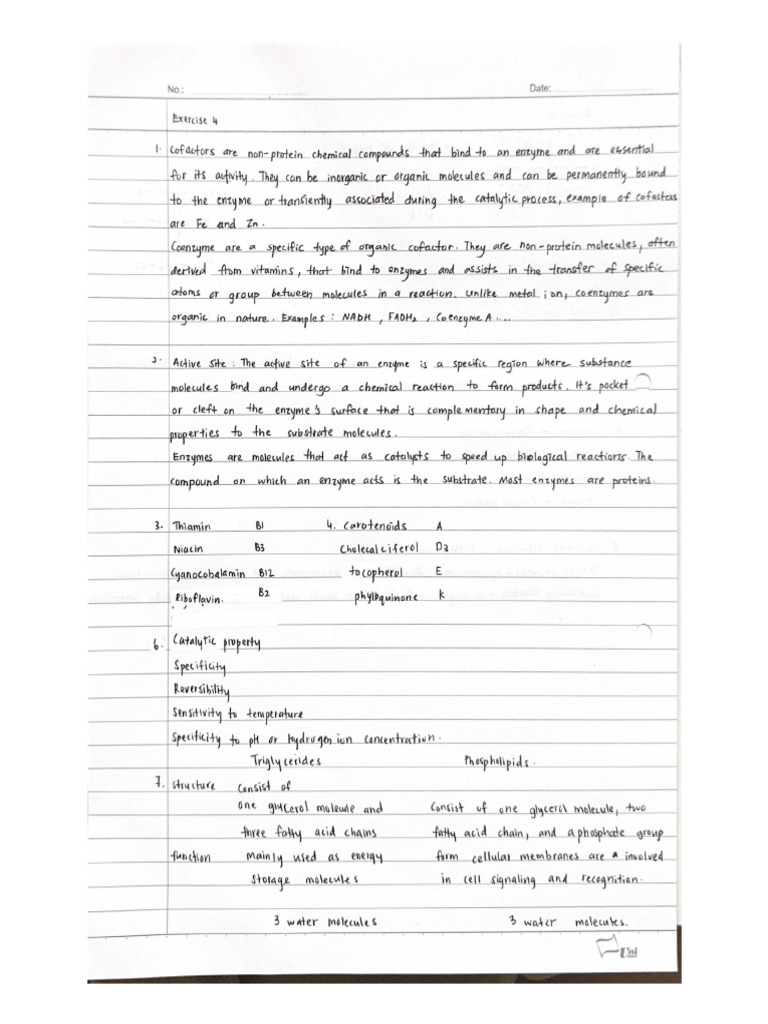 No.: Date:
Exercise 4
1. Cofactors are non-protein chemical compounds that bind to an enzyme and are essential
for its activity. They can be inorganic or organic molecules and can be permanently bound
to the enzyme or transiently associated during the catalytic process, example of cofactors
are Fe and Zn.
Coenzyme are a specific type of organic cofactor. They are non-protein molecules, often
derived from vitamins, that bind to enzymes and assists in the transfer of specific
atoms or group between molecules in a reaction. Unlike metal ion, coenzymes are
organic in nature. Examples: NADH, FADH₂, Coenzyme A....
2. Active site: The active site of an enzyme is a specific region where substance
molecules bind and undergo a chemical reaction to form products. It's pocket
or cleft on the enzyme's surface that is complementary in shape and chemical
properties to the substrate molecules.
Enzymes are molecules that act as catalysts to speed up biological reactions. The
compound on which an enzyme acts is the substrate. Most enzymes are proteins.
3. Thiamin B1 4. Carotenoids A
Niacin B3 Cholecalciferol D3
Cyanocobalamin B12 tocopherol E
Riboflavin. B2 phylloquinone K
6. Catalytic property
Specificity
Reversibility
Sensitivity to temperature
Specificity to pH or hydrogen ion concentration.
Triglycerides Phospholipids.
7. Structure Consist of
one glycerol molecule and Consist of one glycerol molecule, two
three fatty acid chains fatty acid chain, and a phosphate group
function mainly used as energy form cellular membranes are involved
storage molecules in cell signaling and recognition.
3 water molecules 3 water molecules.
Uni